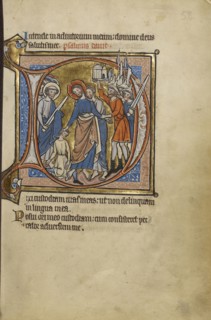 Intende in adiutorium meum: domine deus
salutis mee. psalmus dauid
ixi custodiam uias meas: ut non delinquam
in lingua mea.
Posui ori meo custodiam: cum consisteret pec
cator aduersum me.